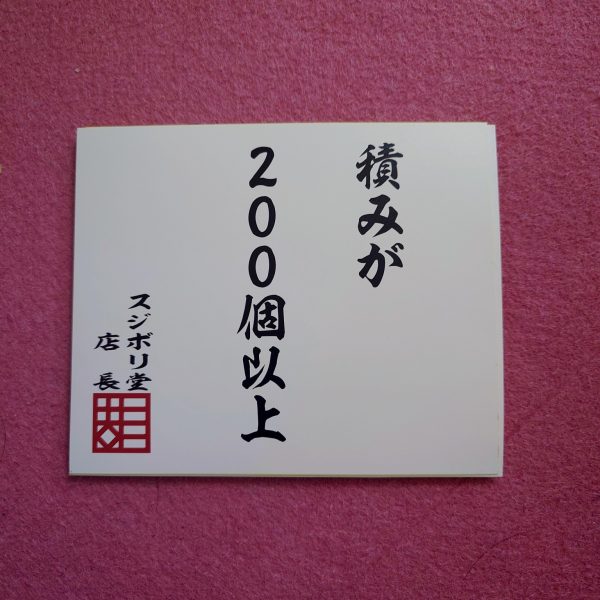 積みが
２００個以上
スジボリ堂
店長